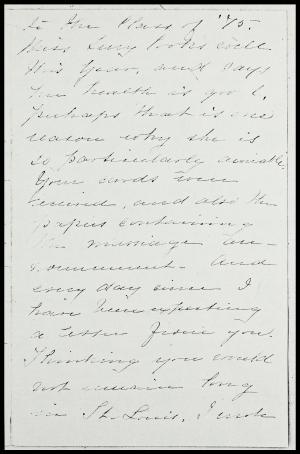 to the Class of '75.
Miss Lucy looks well
this year, and says
her health is good,
perhaps that is one
reason why she is
so particularly amiable.
Your cards were
received, and also the
papers containing
the marriage an-
nouncement. And
every day since I
have been expecting
a letter from you.
Thinking you would
not remain long
in St. Louis, I